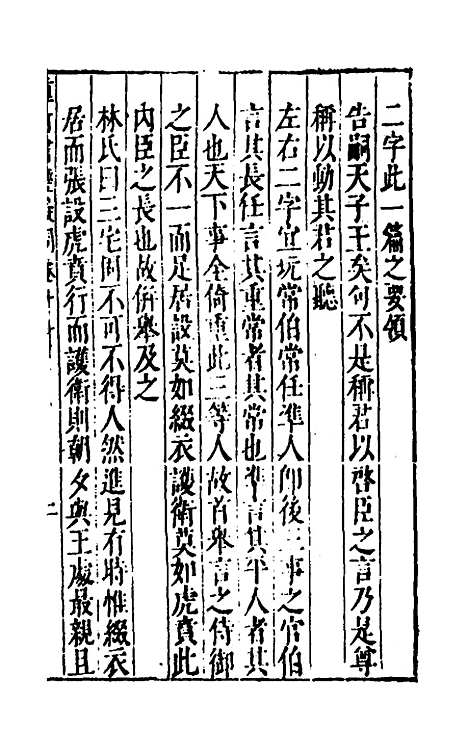 二字此一篇之要領
告嗣天子王矣句不是稱君以啓臣之言乃是尊
稱以動其君之聽
左右二字宜玩常伯常任準人卽後三事之官伯
言其長任言其重常者其常也準言其平人者其
人也天下事全倚重此三等人故首舉言之侍御
之臣不一而足居設莫如綴衣護衛莫如虎賁此
內臣之長也故倂舉及之
林氏曰三宅固不可不得人然進見有時惟綴衣
居而張設虎賁行而護衛則朝夕與王處最親且